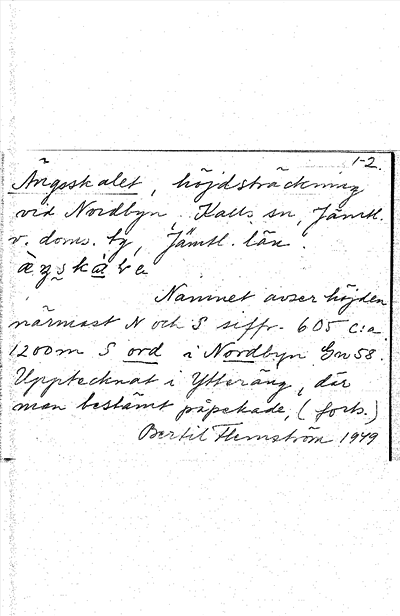 1-2.
Ängsskalet, höjdsträckning
vid Nordbyn. Kalls sn, Jämtl.
v. doms. tg, Jämtl. län.
Namnet avser höjden
närmast N och S siffr. 605 c:a
1200 m S ord i Nordbyn Gu 58.
Upptecknat i Ytteräng, där
man bestämt påpekade, (forts.)
Bertil Flemström 1949